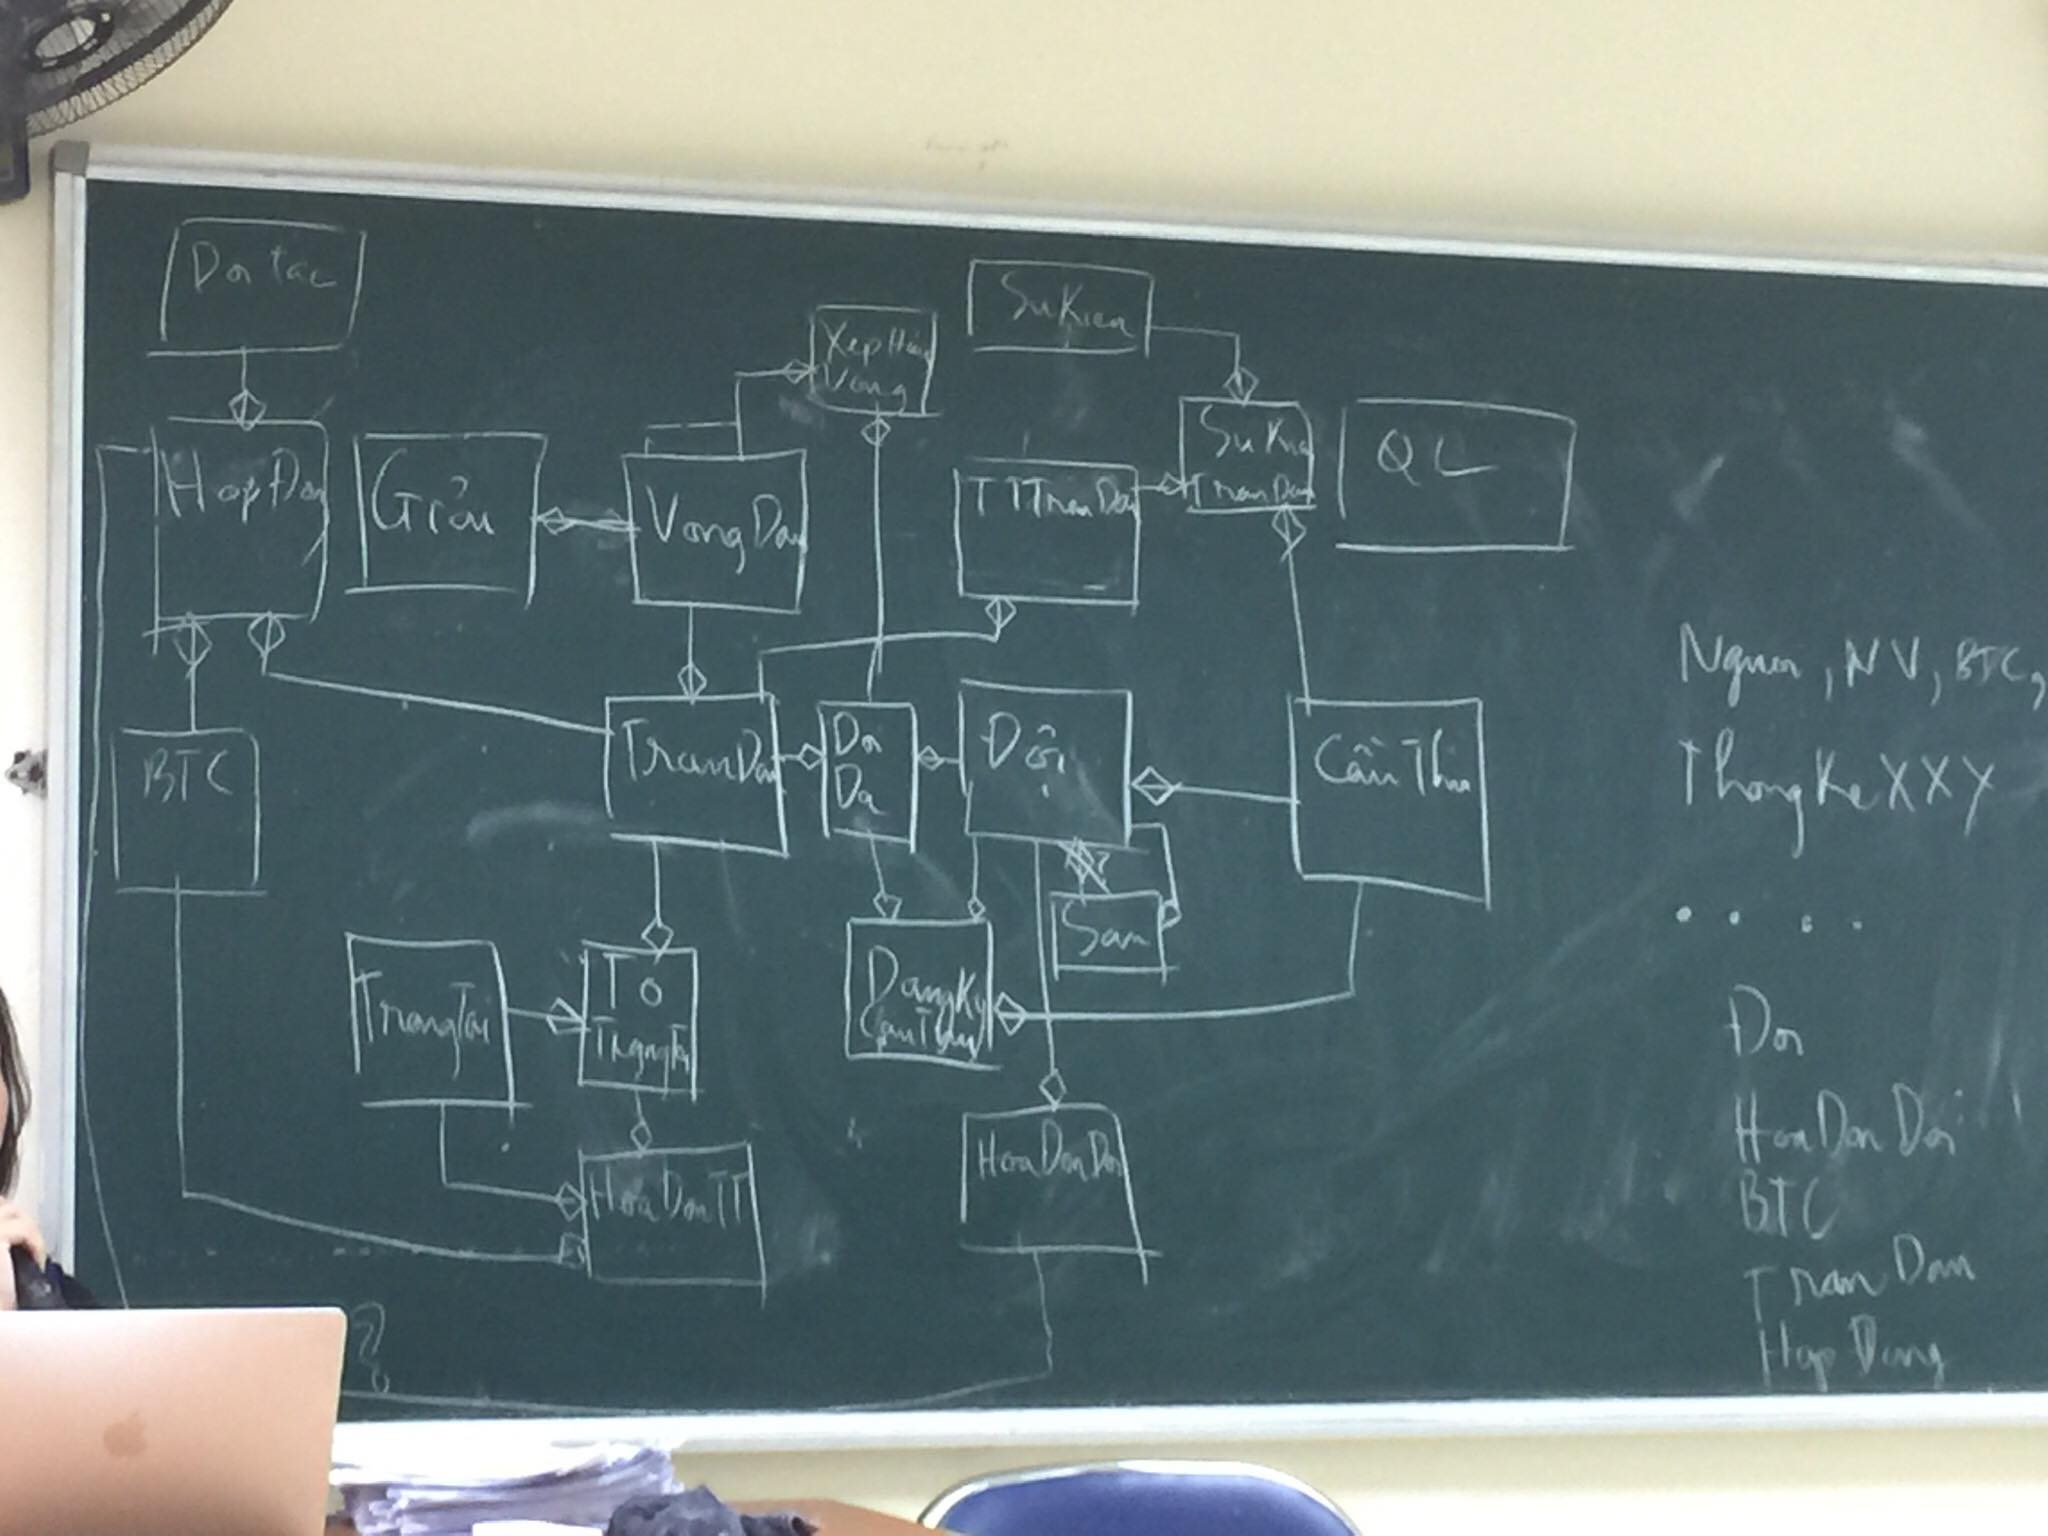 Doi tac
SuKien
XepHang
Vong
HopDon
Giải
VongDau
TTTranDau
Su Kie
TranDau
QL
BTC
TranDau
Doi
Da
Đội
Cầu Thu
San
TrongTai
TO
TrongTai
DangKy
CauThu
HoaDonTT
HoaDonDoi
?
Nguoi, NV, BTC,
ThongKeXXY
. . . .
Đoi
HoaDonDoi
BTC
TranDau
HopDong